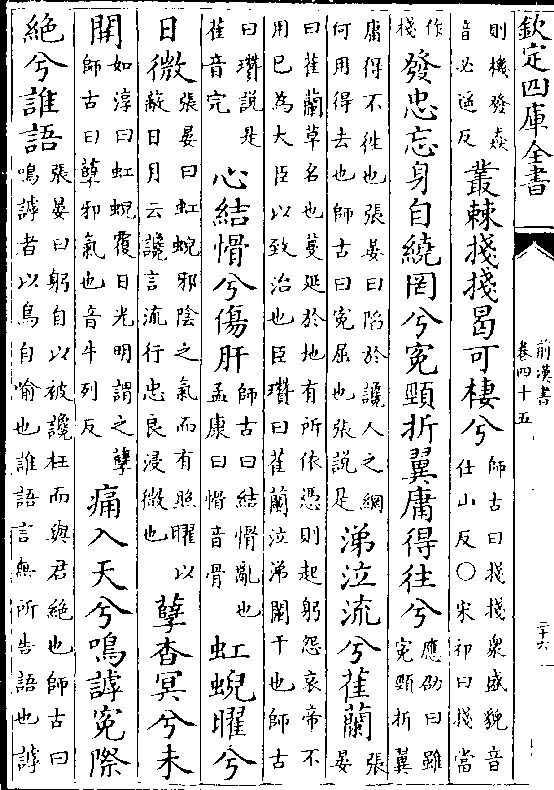 欽定四庫全書
前漢書
卷四十五
二十六
則機發猋
音必遥反
叢棘㧗㧗曷可棲兮
師古曰㧗㧗衆盛貌音
仕山反○宋祁曰㧗當
作
棧
發忠忘身自繞罔兮寃頸折翼庸得往兮
應劭曰雖
寃頸折翼
庸得不徃也張晏曰陷於讒人之網
何用得去也師古曰寃屈也張說是
涕泣流兮萑蘭
張
晏
曰萑蘭草名也蔓延於地有所依憑則起躬怨哀帝不
用已為大臣以致治也臣瓚曰萑蘭泣涕闌干也師古
曰瓚說是
萑音完
心結愲兮傷肝
師古曰結愲亂也
孟康曰愲音骨
虹蜺曜兮
日微
張晏曰虹蜺邪陰之氣而有照曜以
蔽日月云讒言流行忠良浸微也
孽杳冥兮未
開
如淳曰虹蜺覆日光明謂之孽
師古曰孽邪氣也音牛列反
痛入天兮鳴謼寃際
絶兮誰語
張晏曰躬自以被讒枉而與君絶也師古曰
鳴謼者以鳥自喻也誰語言無所告語也謼